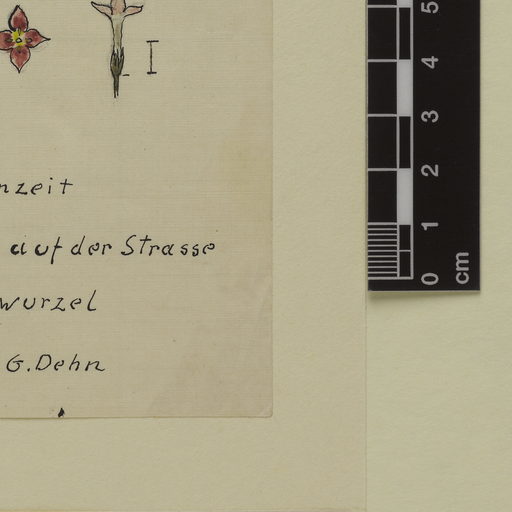 nzeit
auf der Strasse
wurzel
G. Dehn
5
4
3
2
1
0
cm